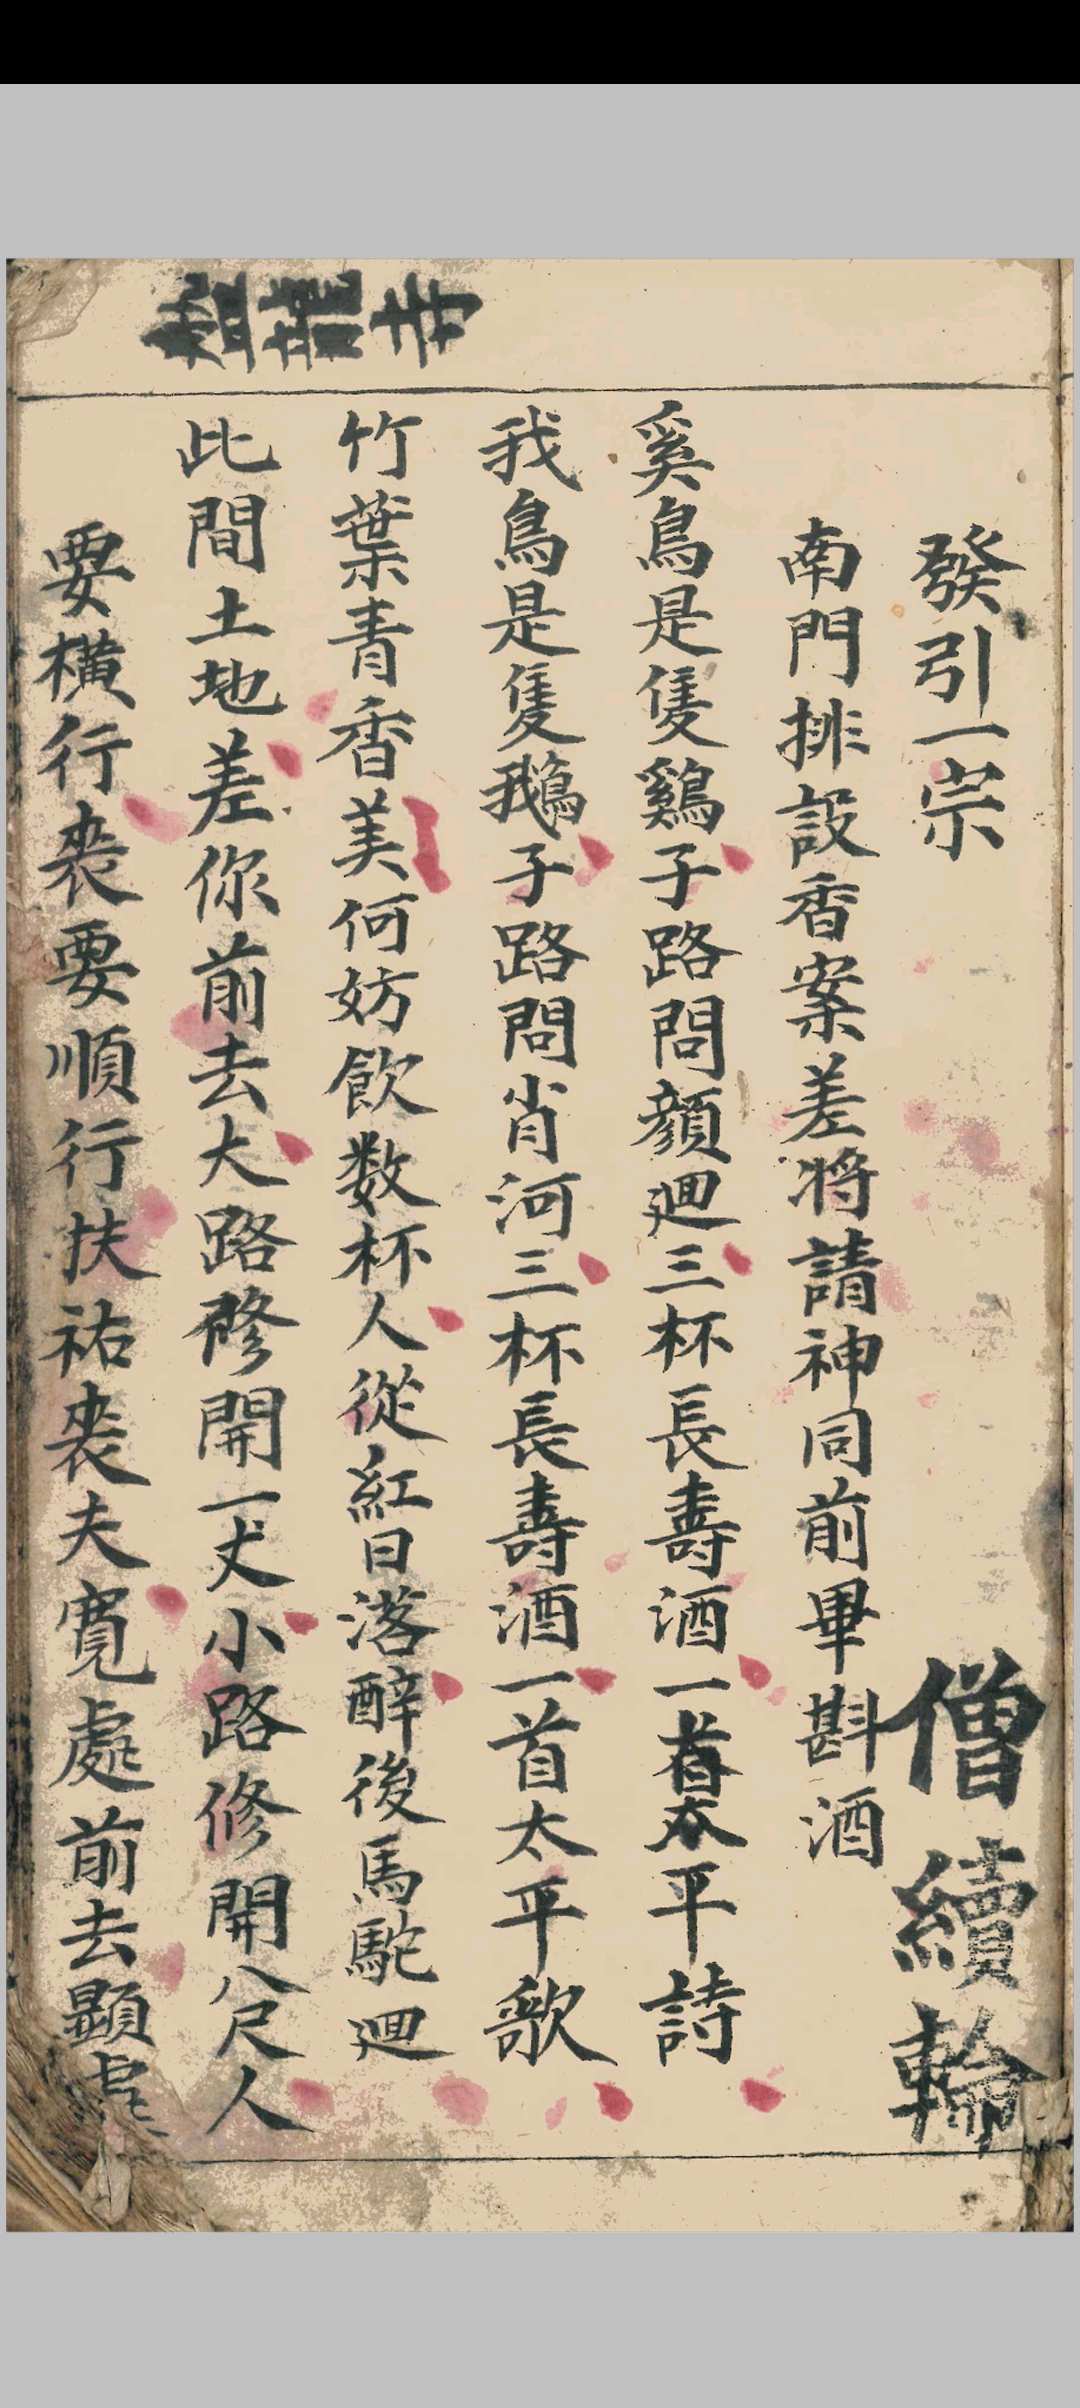 發引一宗
僧續輪
南門排設香案差將請神同前畢斟酒
奚鳥是隻鷄子路問顏廻三杯長壽酒一首太平詩
我鳥是隻鵝子路問肖河三杯長壽酒一首太平歌
竹葉青香美何妨飲数杯人從紅日落醉後馬駝廻
此間土地差你前去大路修開一丈小路修開八尺人
要橫行喪要順行扶祐喪夫寬處前去顯處